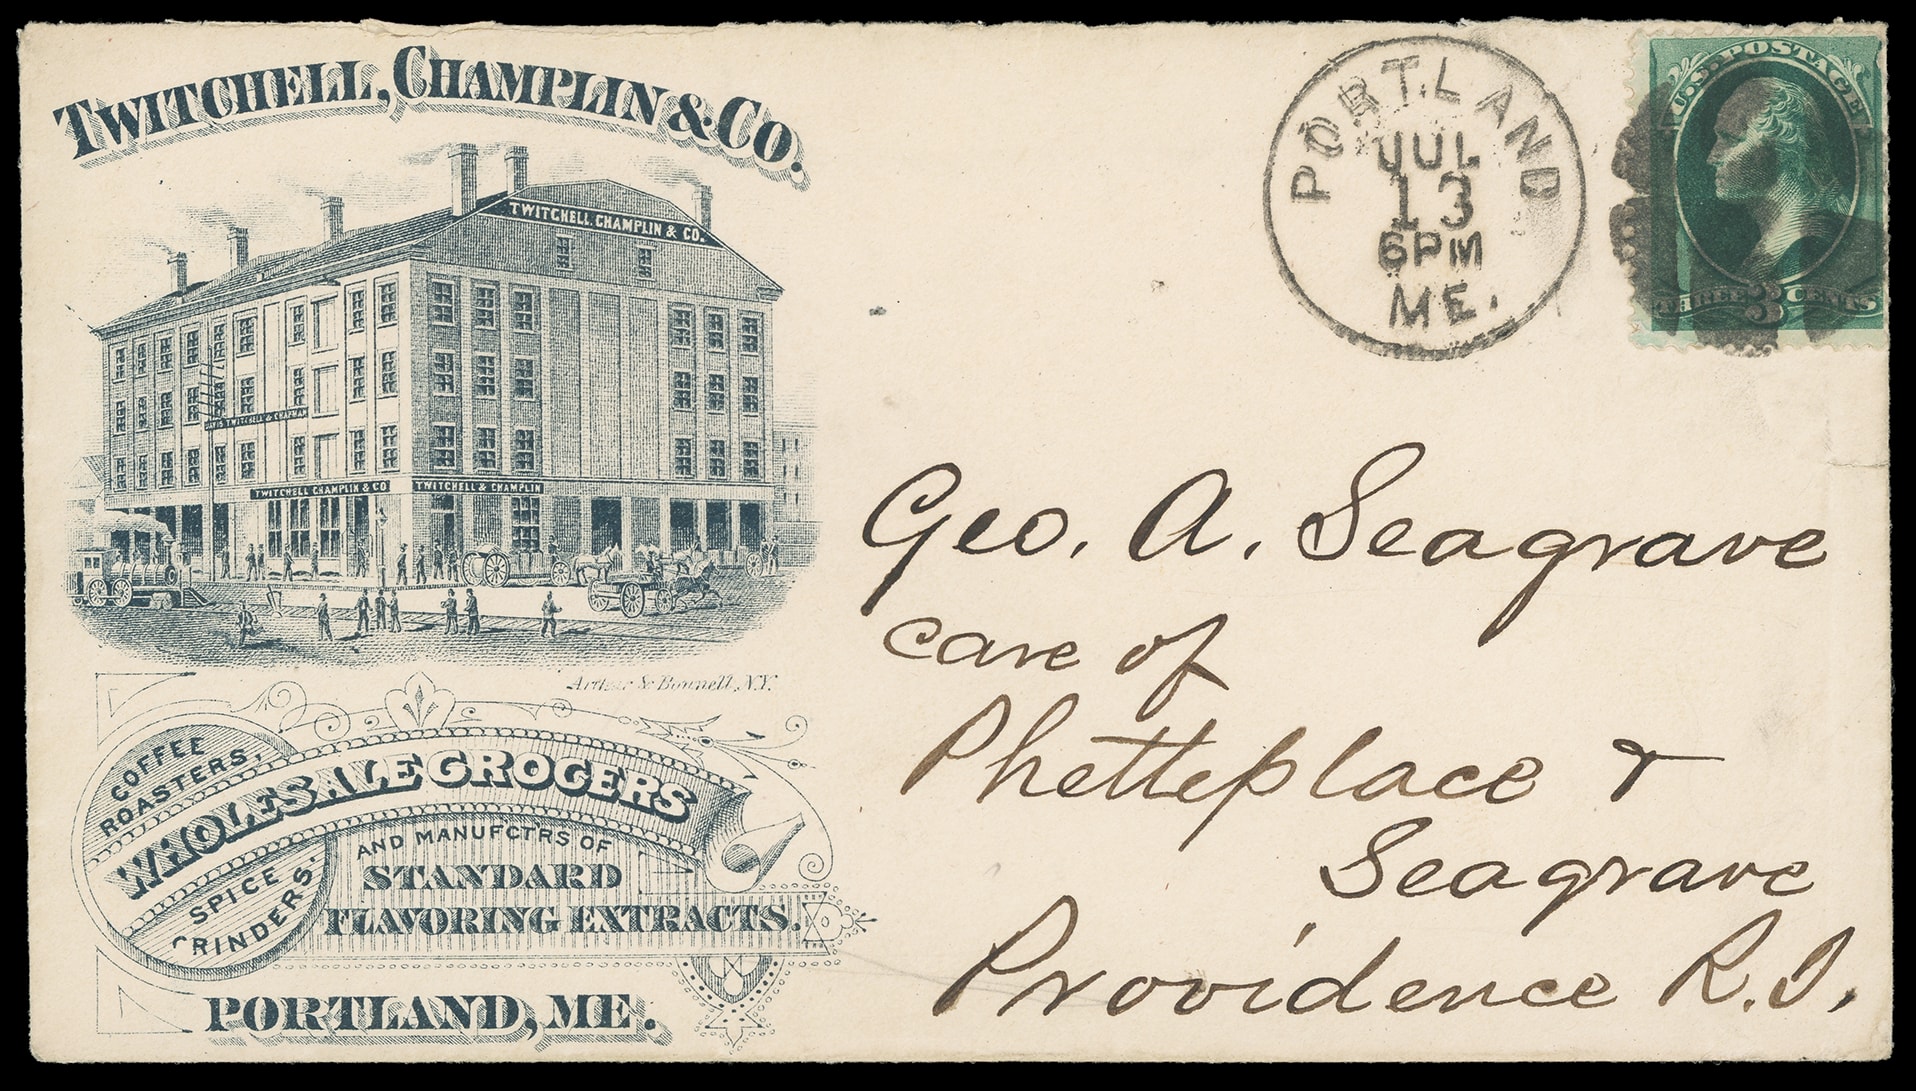 TWITCHELL, CHAMPLIN & CO.
TWITCHELL, CHAMPLIN & CO.
TWITCHELL & CHAPMAN
TWITCHELL CHAMPLIN & CO
TWITCHELL & CHAMPLIN
Arthur & Bonnell, N.Y.
COFFEE
ROASTERS,
WHOLESALE GROCERS
SPICE
GRINDERS.
AND MANUFCTRS OF
STANDARD
FLAVORING EXTRACTS.
PORTLAND, ME.
PORTLAND
JUL
13
6PM
ME.
U.S. POSTAGE
THREE 3 CENTS
Geo. A. Seagrave
care of
Phetteplace &
Seagrave
Providence R.I.